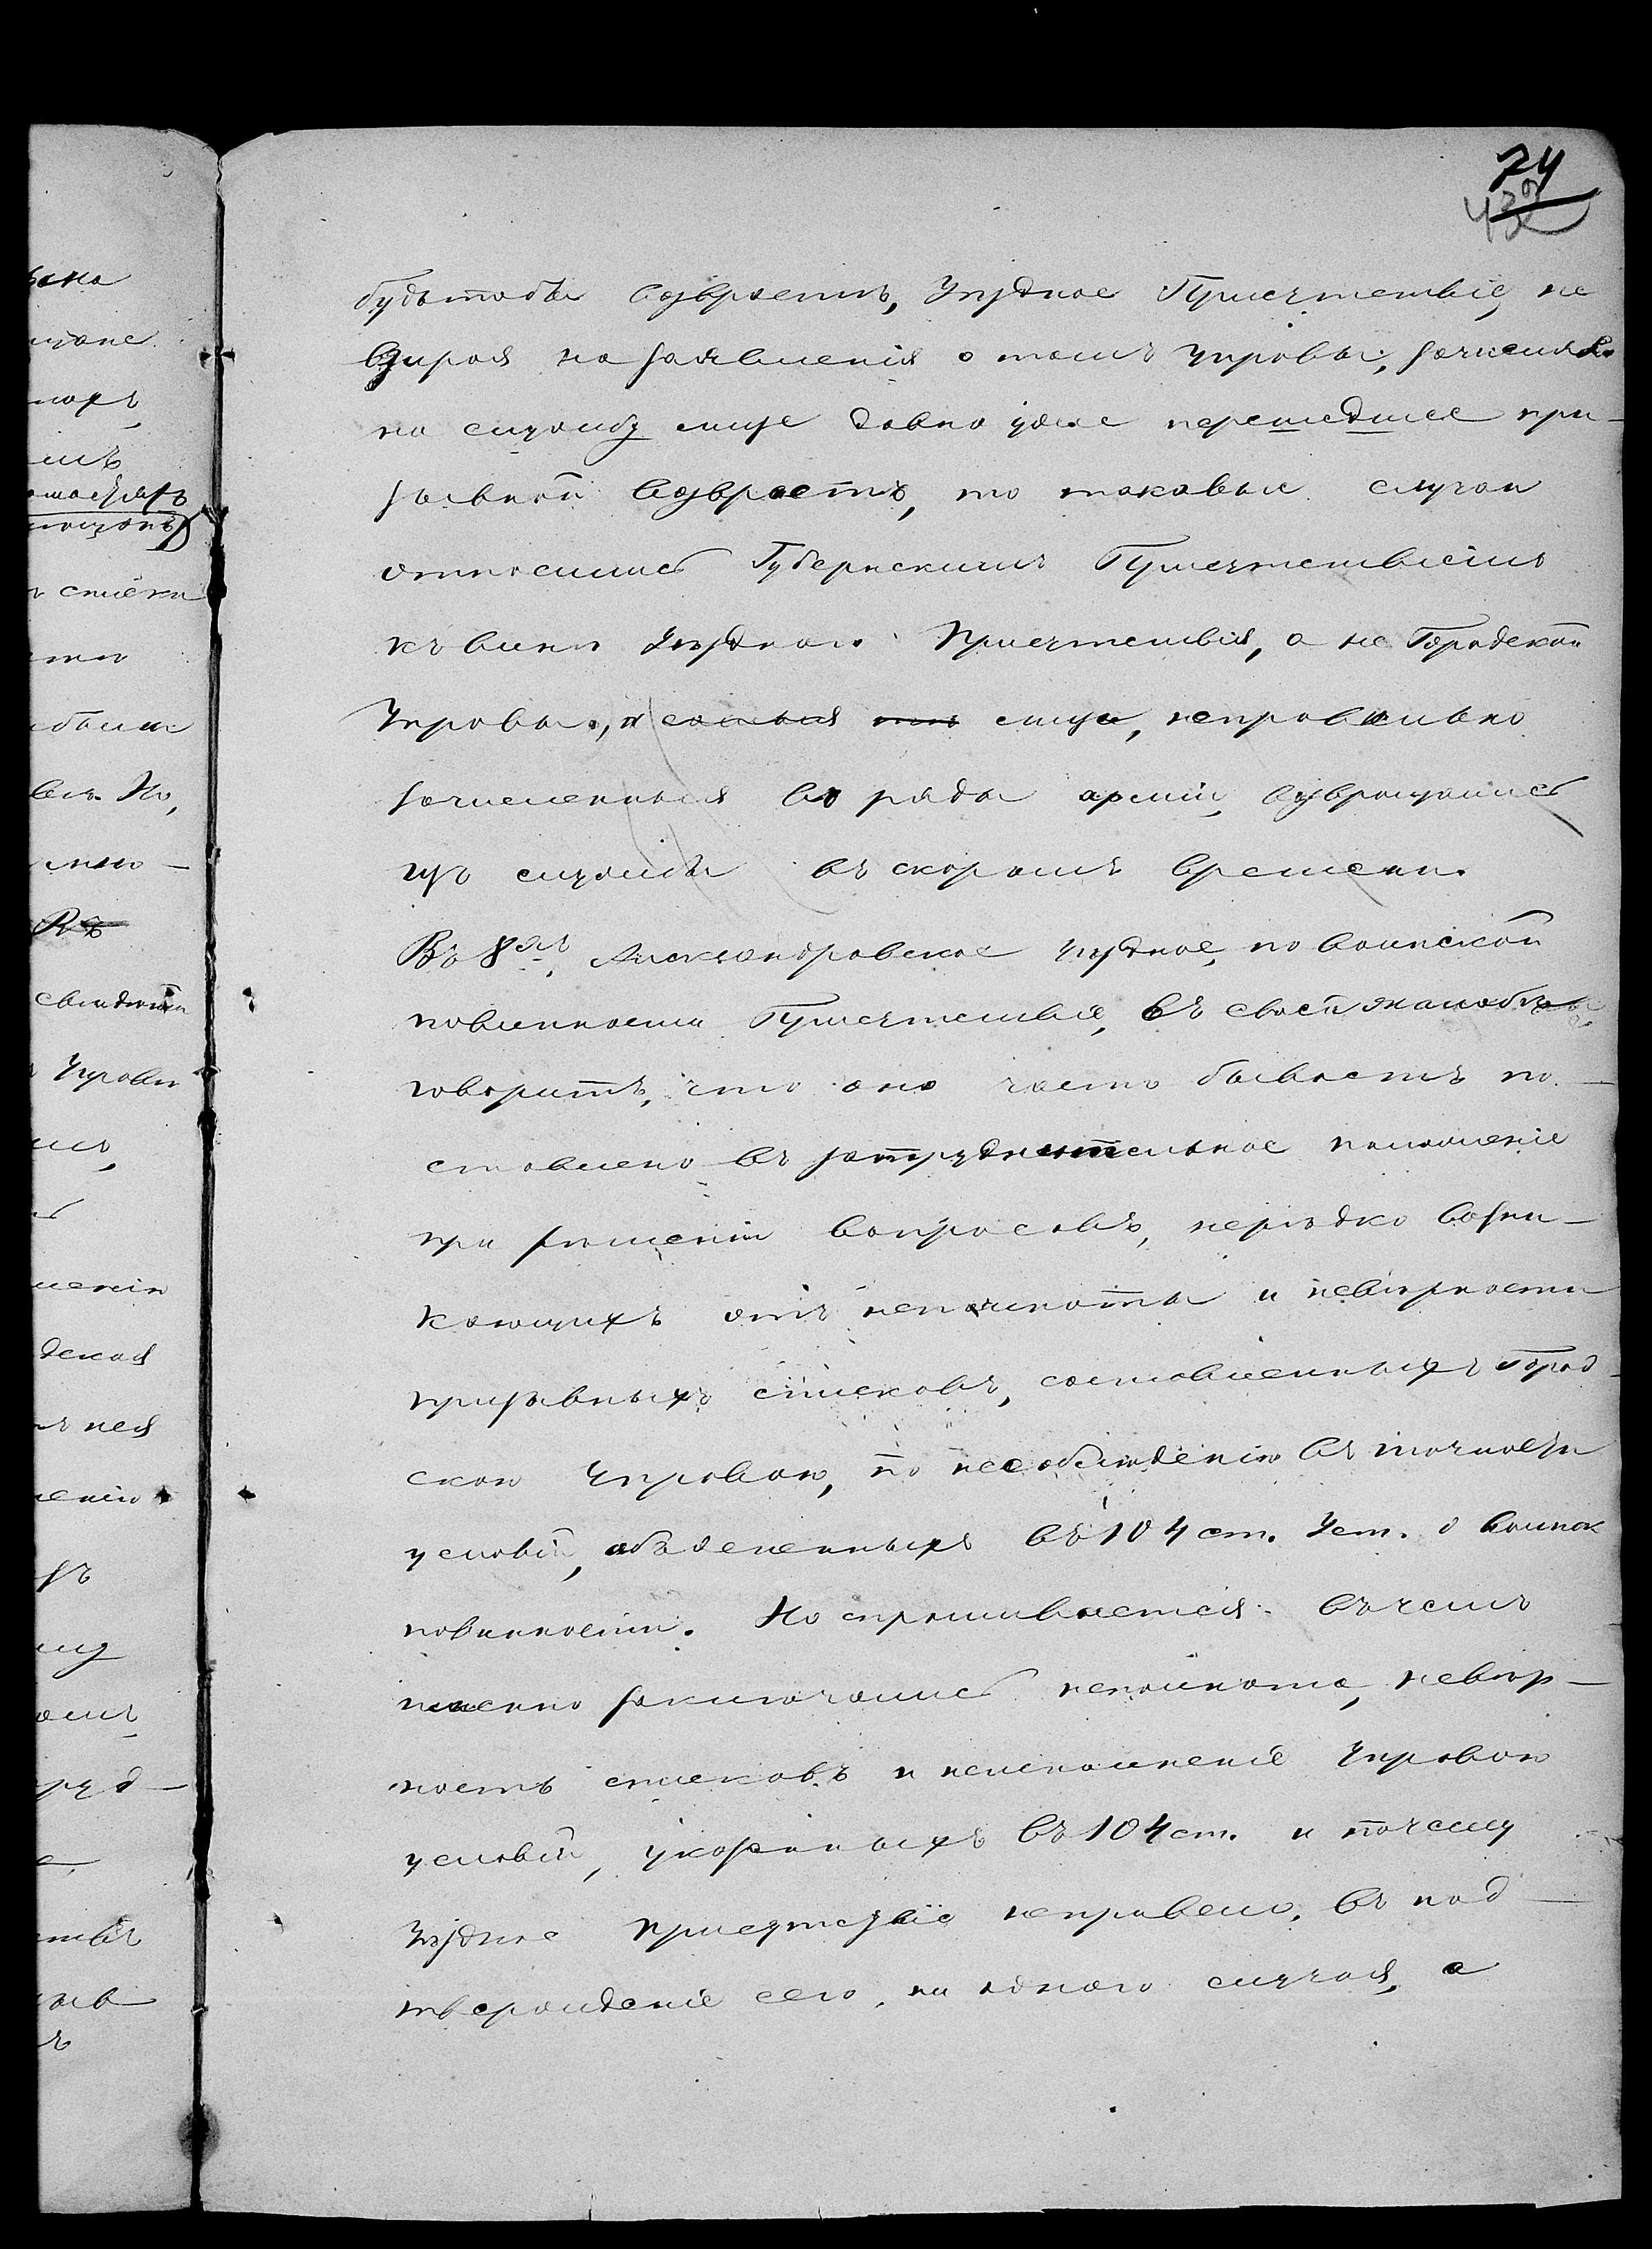 74
будтобы возврастъ, Уѣздное Присутствіе, не
взирая на заявленія о томъ Управы, зачисляло
на службу лице давно уже перешедшее при-
зывной возврастъ, то таковые случаи
относились Губернскимъ Присутствіемъ
къ винѣ Уѣзднаго Присутствія, а не Городской
Управы, и самыя лица, неправильно
зачисленныя въ ряды арміи, возвращались
изъ службы въ скоромъ времени.
Въ 8хъ, Александровское уѣздное, по воинской
повинности Присутствіе, въ своей жалобѣ
говоритъ, что оно часто бываетъ по-
ставлено въ затруднительное положеніе
при рѣшеніи вопросовъ, нерѣдко возни-
кающихъ отъ неполноты и невѣрности
призывныхъ списковъ, составленныхъ Город-
скою Управою, по несоблюденію въ точности
условій, объясненныхъ въ 104 ст. Уст. о воинск
повинности. Но спрашивается въ чемъ
именно заключались неполнота, невѣр-
ность списковъ и неисполненіе Управою
условій, указанныхъ въ 104 ст. и почему
Уѣздное Присутствіе неправело, въ под-
твержденіе сего, ни одного случая, а